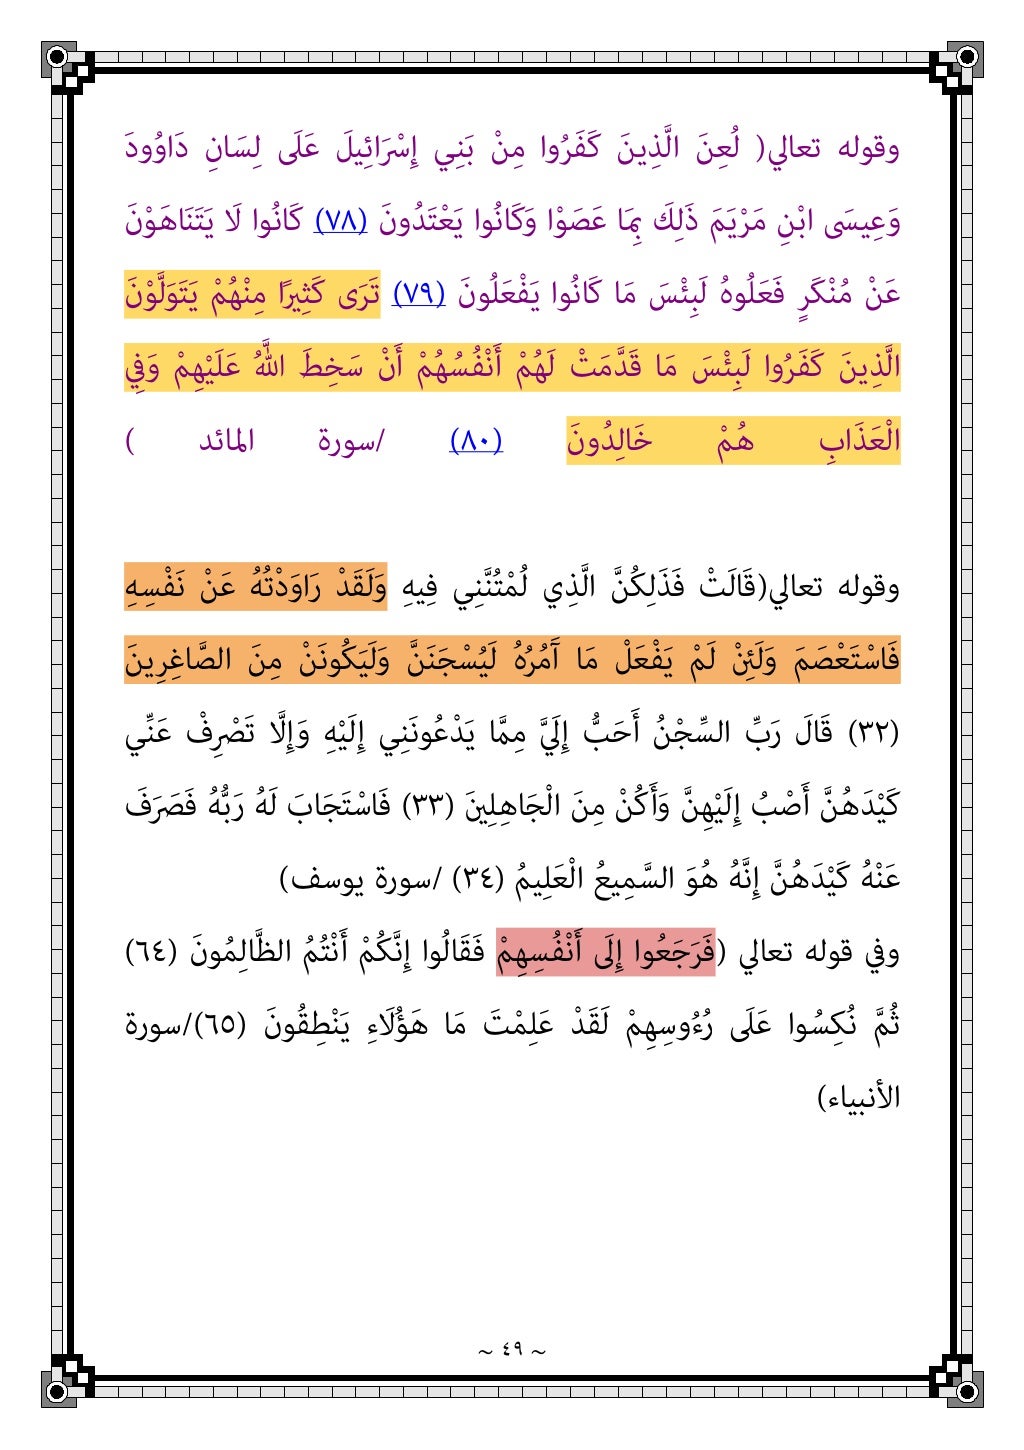 وقوله تعالي( لُعِنَ الَّذِينَ كَفَرُوا مِنْ بَنِي إِسْرَائِيلَ عَلَى لِسَانِ دَاوُودَ
وَعِيسَى ابْنِ مَرْيَمَ ذَلِكَ بِمَا عَصَوْا وَكَانُوا يَعْتَدُونَ (٧٨) كَانُوا لَا يَتَنَاهَوْنَ
عَنْ مُنْكَرٍ فَعَلُوهُ لَبِئْسَ مَا كَانُوا يَفْعَلُونَ (٧٩) تَرَى كَثِيرًا مِنْهُمْ يَتَوَلَّوْنَ
الَّذِينَ كَفَرُوا لَبِئْسَ مَا قَدَّمَتْ لَهُمْ أَنْفُسُهُمْ أَنْ سَخِطَ اللَّهُ عَلَيْهِمْ وَفِي
الْعَذَابِ هُمْ خَالِدُونَ (٨٠) /سورة المائد )
وقوله تعالي(قَالَتْ فَذَلِكُنَّ الَّذِي لُمْتُنَّنِي فِيهِ وَلَقَدْ رَاوَدْتُهُ عَنْ نَفْسِهِ
فَاسْتَعْصَمَ وَلَئِنْ لَمْ يَفْعَلْ مَا آَمُرُهُ لَيُسْجَنَنَّ وَلَيَكُونَنْ مِنَ الصَّاغِرِينَ
(٣٢) قَالَ رَبِّ السِّجْنُ أَحَبُّ إِلَيَّ مِمَّا يَدْعُونَنِي إِلَيْهِ وَإِلَّا تَصْرِفْ عَنِّي
كَيْدَهُنَّ أَصْبُ إِلَيْهِنَّ وَأَكُنْ مِنَ الْجَاهِلِينَ (٣٣) فَاسْتَجَابَ لَهُ رَبُّهُ فَصَرَفَ
عَنْهُ كَيْدَهُنَّ إِنَّهُ هُوَ السَّمِيعُ الْعَلِيمُ (٣٤) /سورة يوسف)
وفي قوله تعالي (فَرَجَعُوا إِلَى أَنْفُسِهِمْ فَقَالُوا إِنَّكُمْ أَنْتُمُ الظَّالِمُونَ (٦٤)
ثُمَّ نُكِسُوا عَلَى رُءُوسِهِمْ لَقَدْ عَلِمْتَ مَا هَؤُلَاءِ يَنْطِقُونَ (٦٥)/سورة
الأنبياء)
~ ٤٩ ~